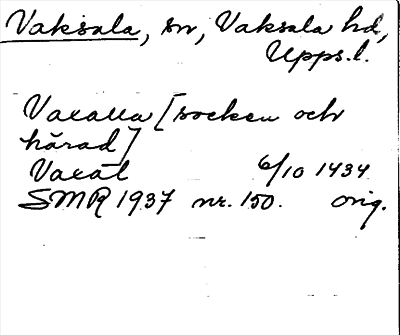 Vaksala, sn, Vaksala hd,
Upps.l.
Vaxalla [socken och
härad]
Vaxal 6/10 1434
SMR 1937 nr. 150. orig.